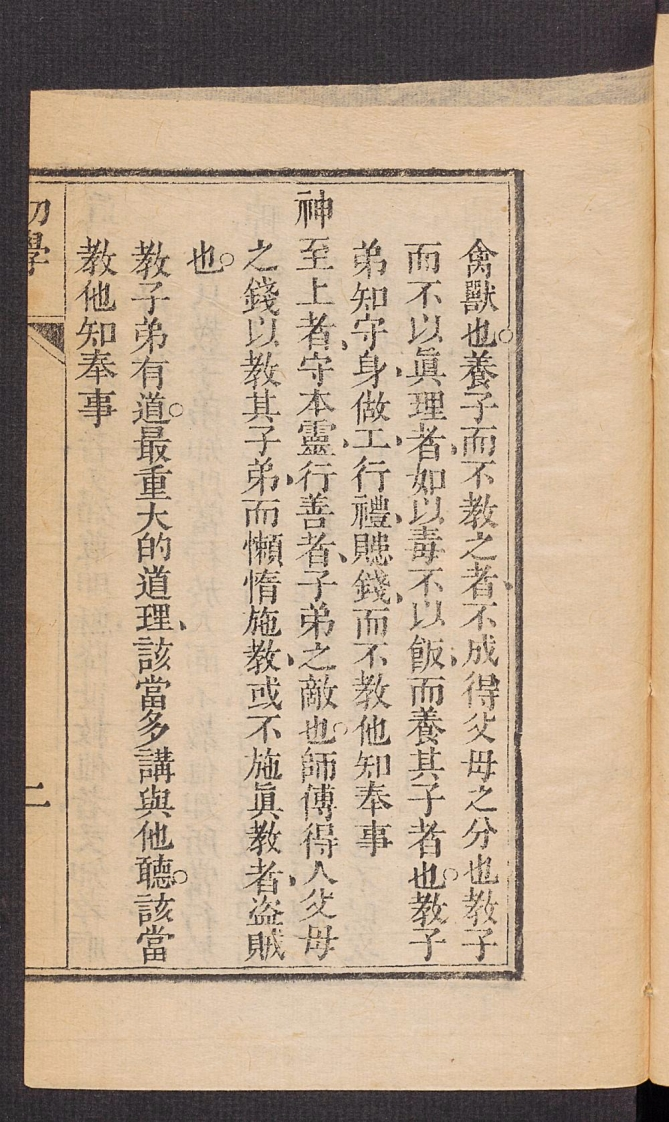 禽獸也。養子而不教之者、不成得父母之分也教子
而不以眞理者、如以毒不以飯、而養其子者也。教子
弟知守身、做工、行禮、賺錢、而不教他知奉事
神至上者、守本靈、行善者、子弟之敵也。師傅得人父母
之錢以教其子弟、而懶惰施教、或不施眞教者、盗賊
也。
教子弟有道。最重大的道理、該當多講與他聽。該當
教他知奉事
初學
二